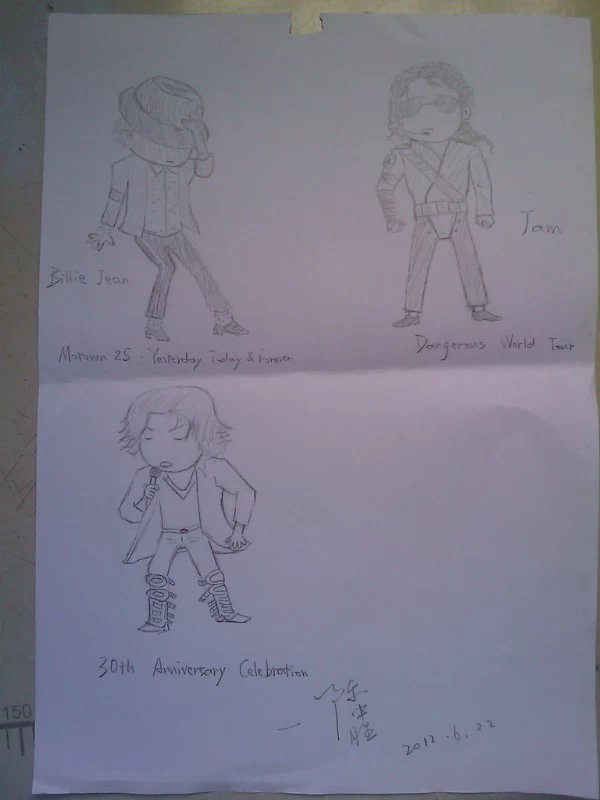 Billie Jean
Jam
Motown 25 : Yesterday Today & Forever
Dangerous World Tour
30th Anniversary Celebration
2012.6.22
150